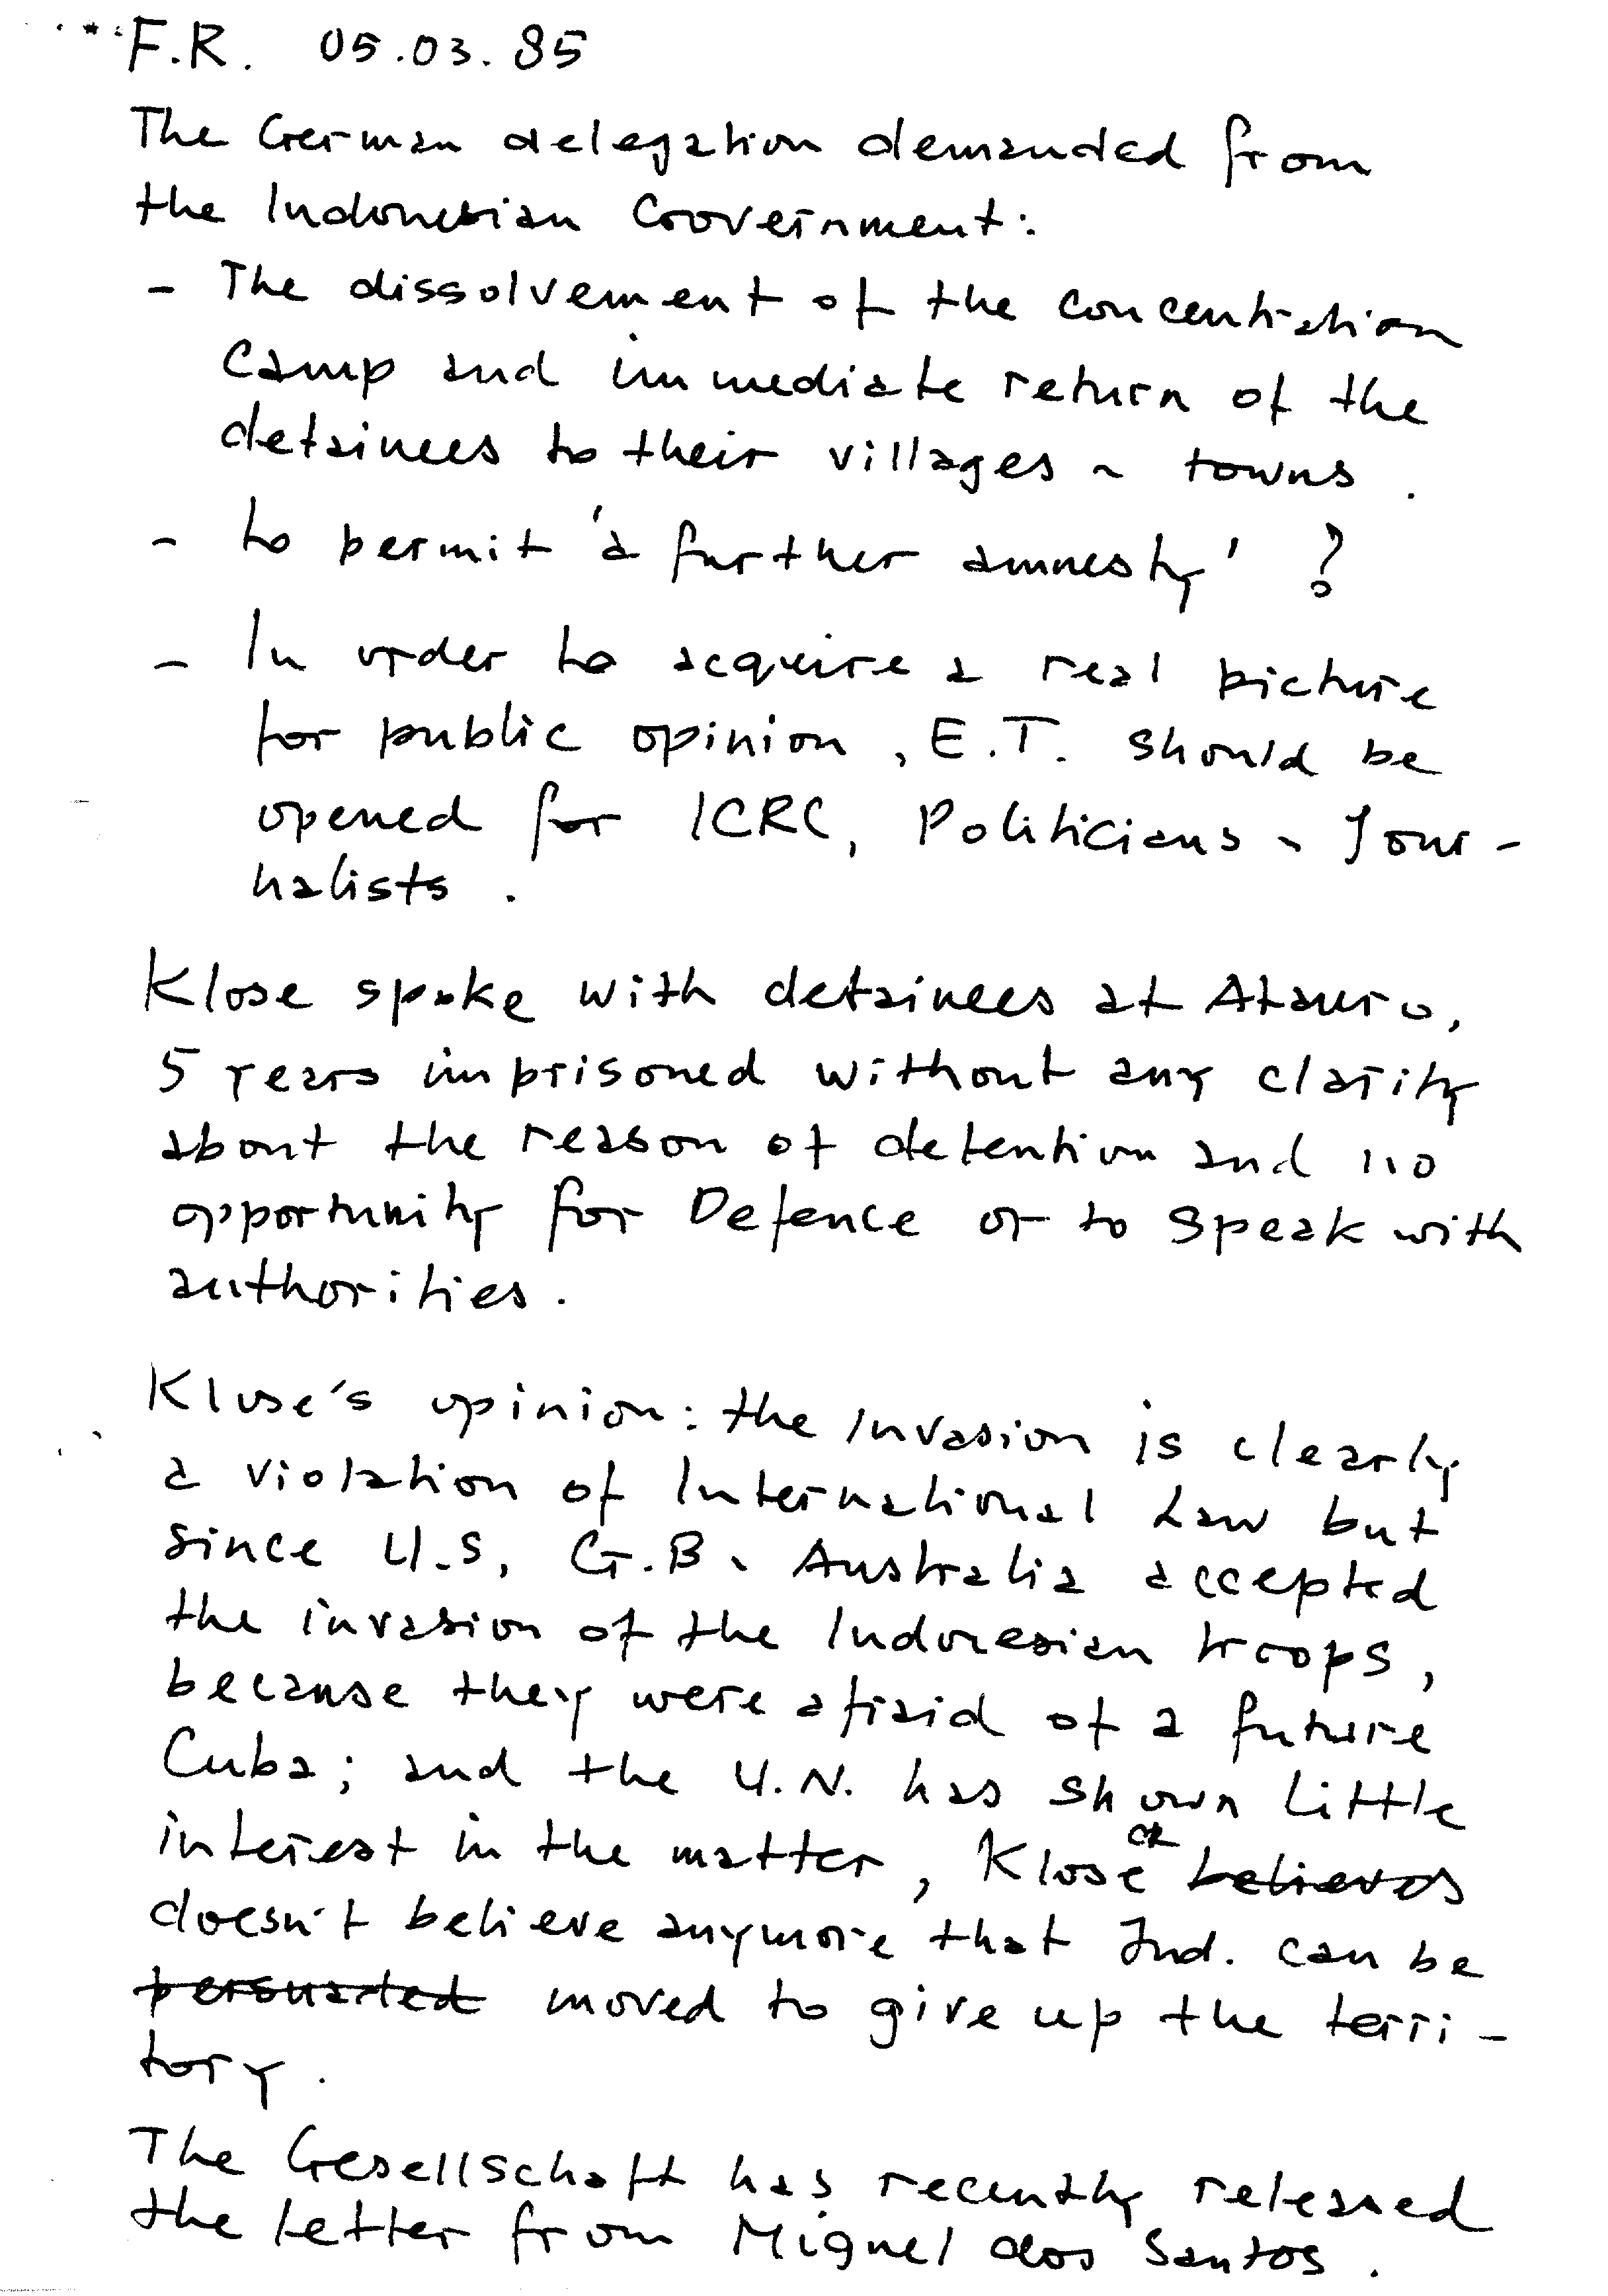 F.R. 05.03.85
The German delegation demanded from
the Indonesian Government:
- The dissolvement of the concentration
camp and immediate return of the
detainees to their villages ~ towns.
- to permit 'a further amnesty' ?
- In order to acquire a real picture
for public opinion, E.T. should be
opened for ICRC, Politicians ~ Jour-
nalists.
Klose spoke with detainees at Atauro,
5 years imprisoned without any clarity
about the reason of detention and no
opportunity for Defence or to speak with
authorities.
Klose's opinion: the invasion is clearly
a violation of International Law but
since U.S, G.B ~ Australia accepted
the invasion of the Indonesian troops,
because they were afraid of a future
Cuba; and the U.N. has shown little
interest in the matter, Klose believes
doesn't believe anymore that Ind. can be
persuaded moved to give up the terri-
tory.
The Gesellschaft has recently released
the letter from Miguel dos Santos.